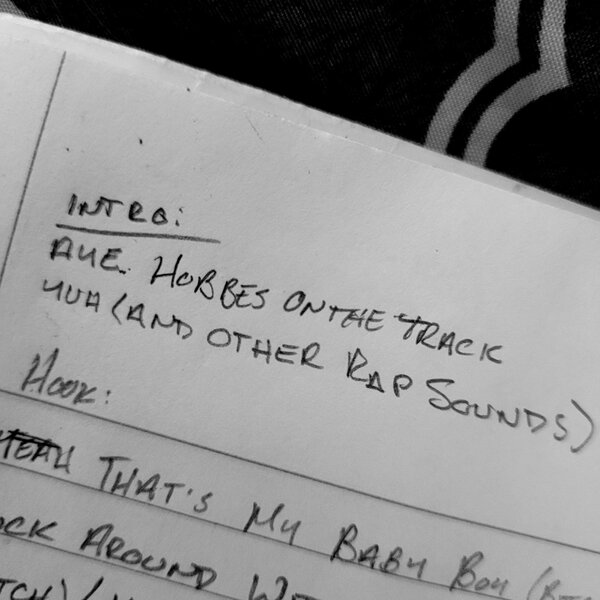 INTRO:
AYE. HOBBES ON THE TRACK
YUH (AND OTHER RAP SOUNDS)
HOOK:
YEAH THAT'S MY BABY BOY
AROUND